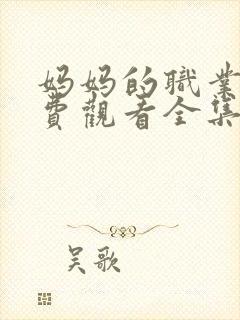 妈妈的職業
費觀看全集
吴歌